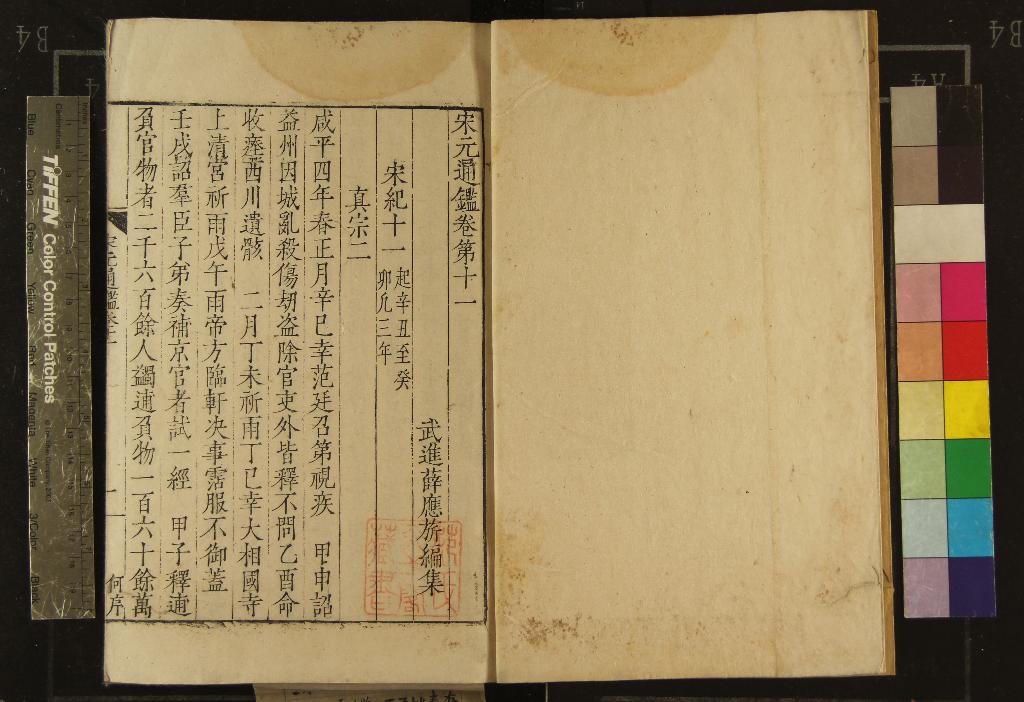 宋元通鑑卷第十一
武進薛應旂編集
宋紀十一 起辛丑至癸
卯凡三年
真宗二
咸平四年春正月辛巳幸范廷召第視疾 甲申詔
益州因城亂殺傷刼盜除官吏外皆釋不問乙酉命
收瘞西川遺骸 二月丁未祈雨丁巳幸大相國寺
上清宮祈雨戊午雨帝方臨軒决事霑服不御蓋
壬戌詔羣臣子弟奏補京官者試一經 甲子釋逋
負官物者二千六百餘人蠲逋負物一百六十餘萬
宋元通鑑卷十一
一
何序
TIFFEN Color Control Patches
Centimetres
Blue
Cyan
Green
Yellow
Red
Magenta
White
3/Color
Black
B4
A4
B4